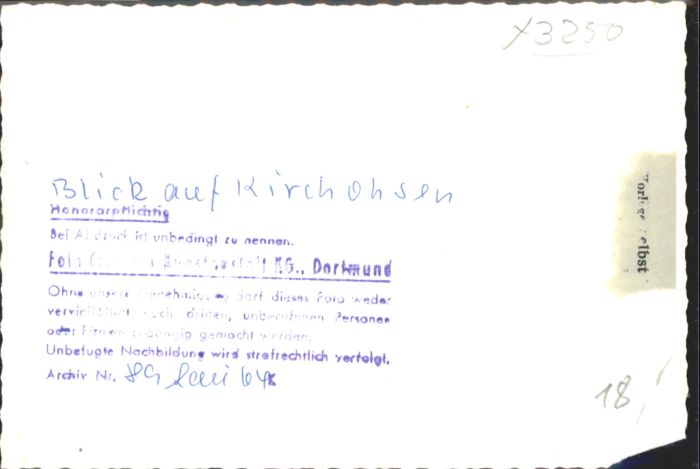 X3250
Blick auf Kirchohsen
Honorarpflichtig
Bei Abdruck ist unbedingt zu nennen.
Foto KG., Dortmund
Ohne unsere Genehmigung darf dieses Foto weder
vervielfältigt noch dritten, unberufenen Personen
oder Firmen zugängig gemacht werden.
Unbefugte Nachbildung wird strafrechtlich verfolgt.
Archiv Nr. 64
selbst
18,